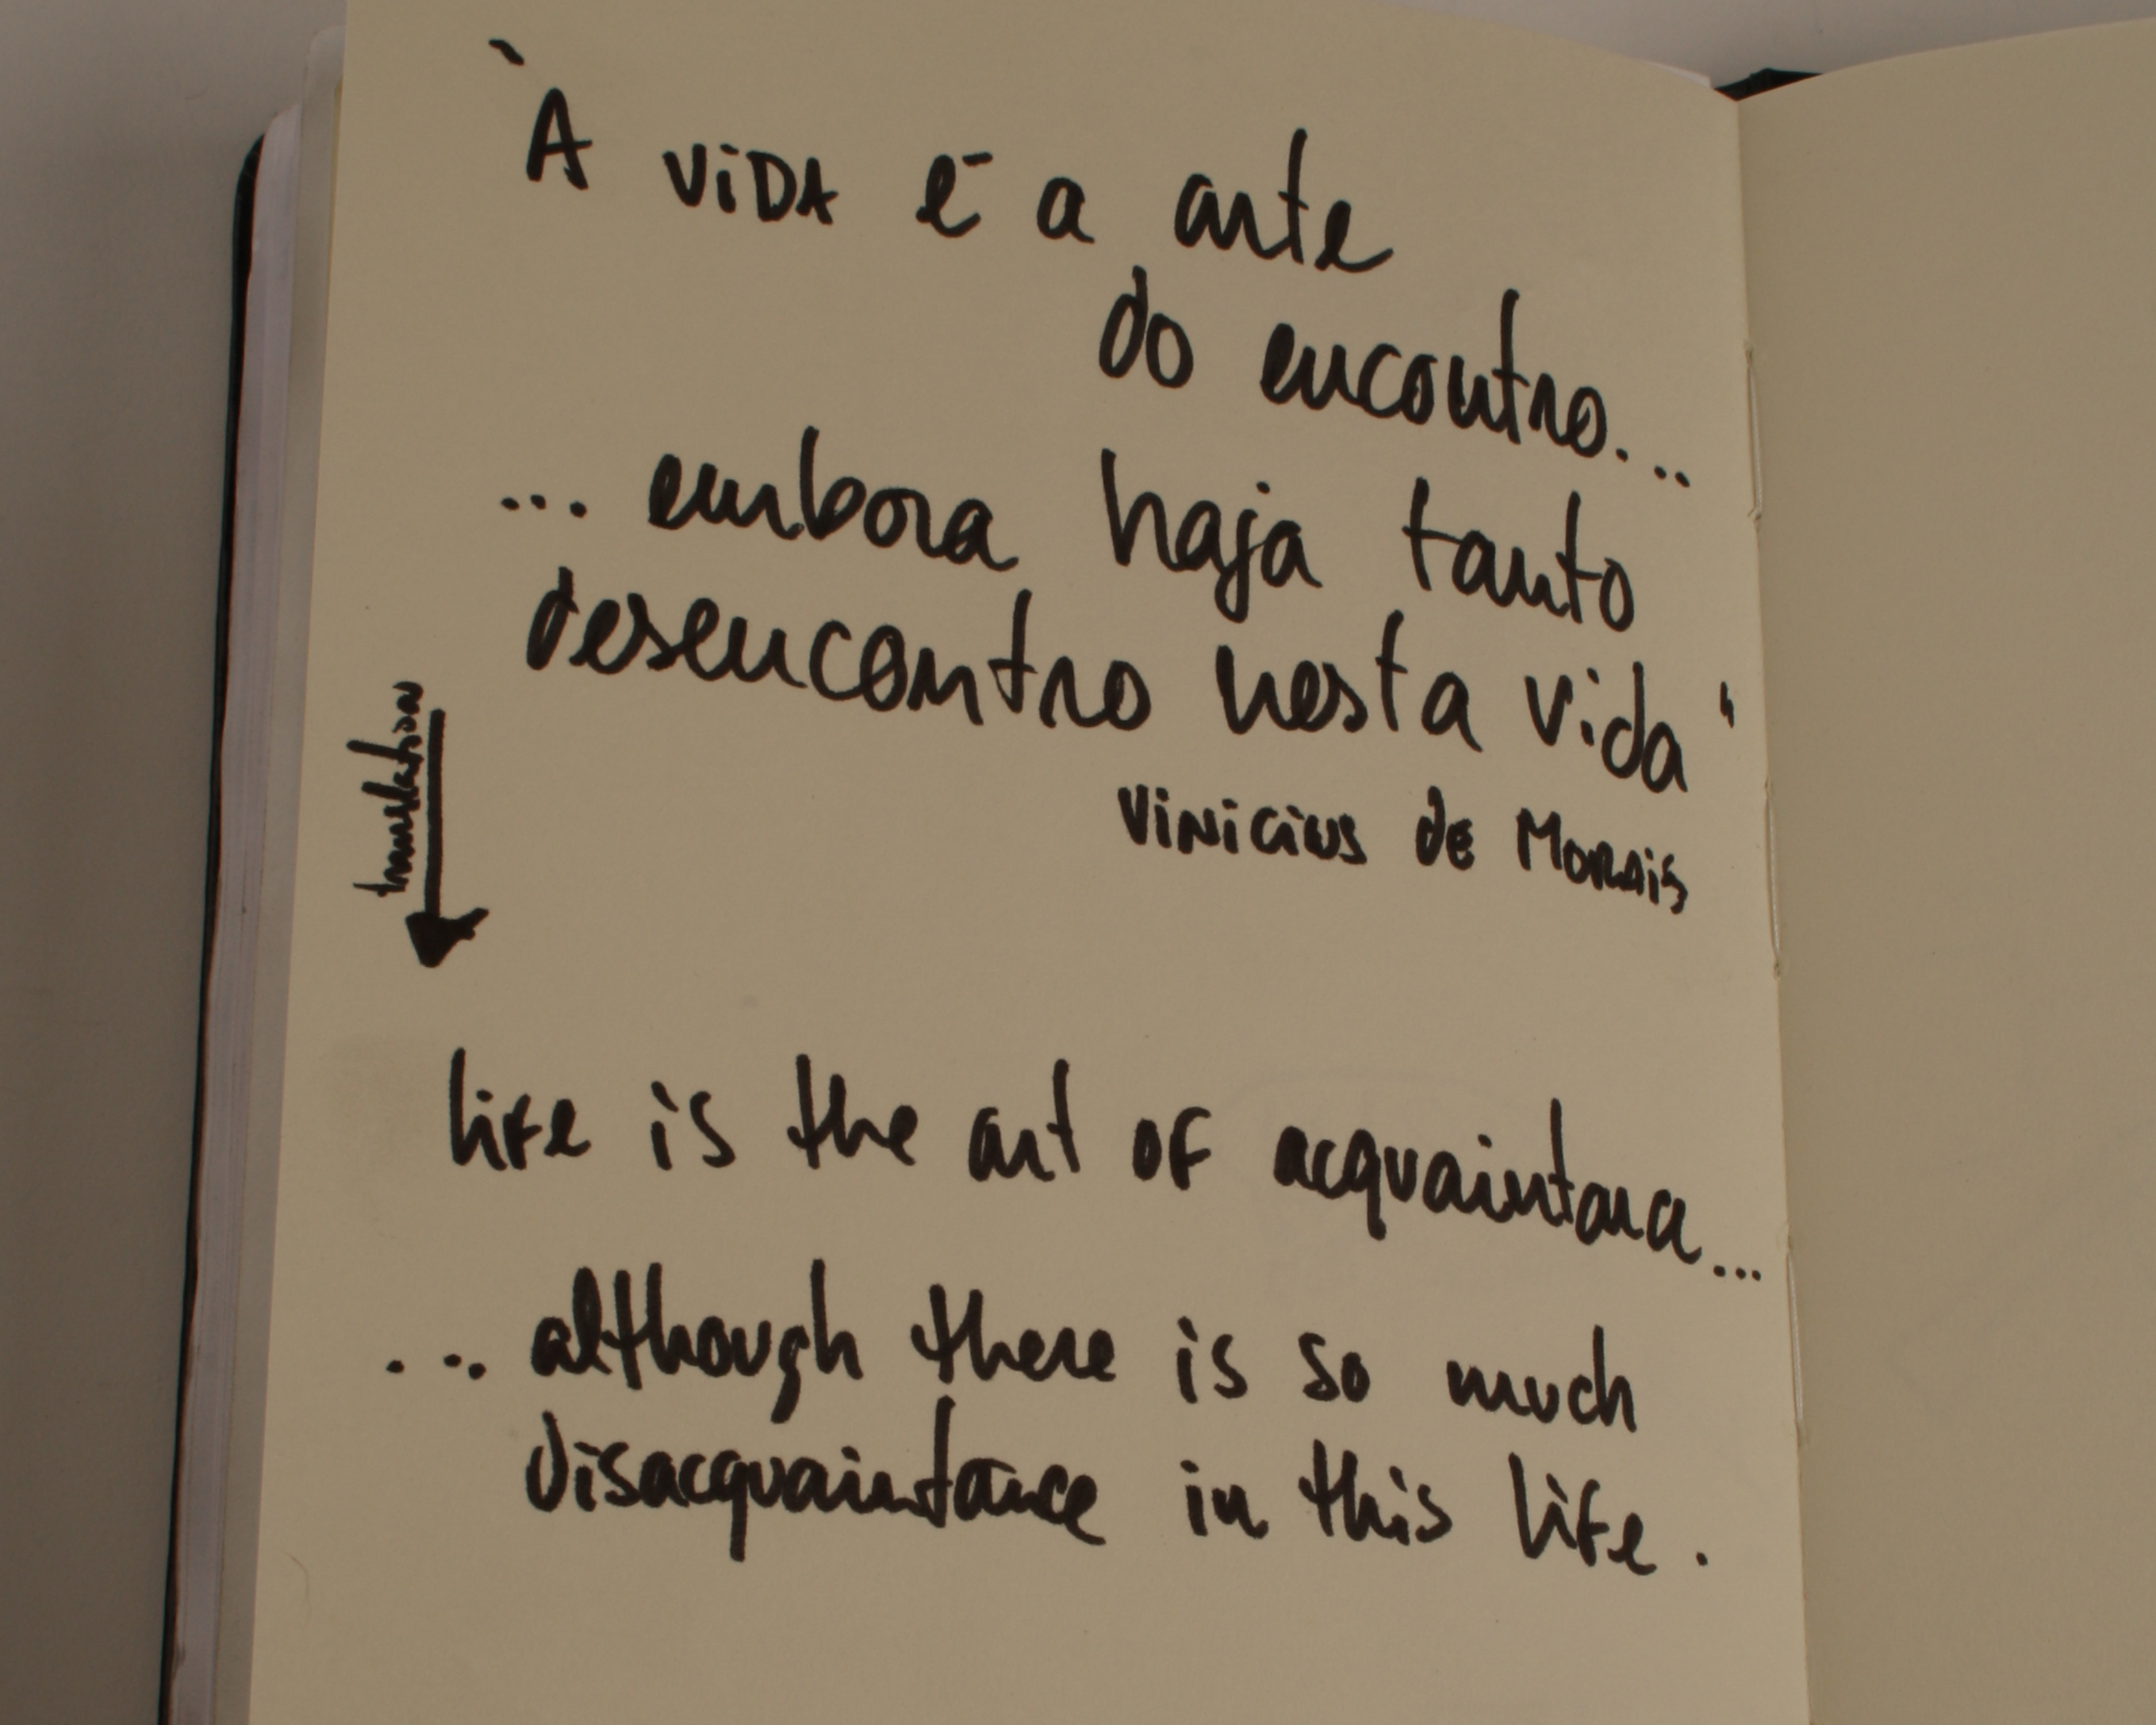 "A VIDA é a arte
do encontro...
... embora haja tanto
desencontro nesta vida"
VINICIUS de MORAIS
translation
life is the art of acquaintance...
... although there is so much
disacquaintance in this life.